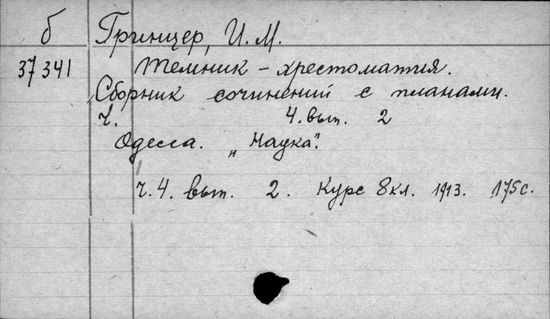 б Гринцер, И. М.
37341 Темник - хрестоматия.
Сборник сочинений с планами.
ч. 4. вып. 2
Одесса. „Наука".
ч. 4. вып. 2. Курс 8 кл. 1913. 175 с.